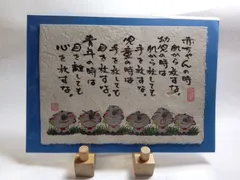 赤ちゃんの時
肌から放すな。
幼児の時は
肌から放しても
手を放すな。
児童の時は
手を放しても
目を離すな。
青年の時は
目を離しても
心を放すな。